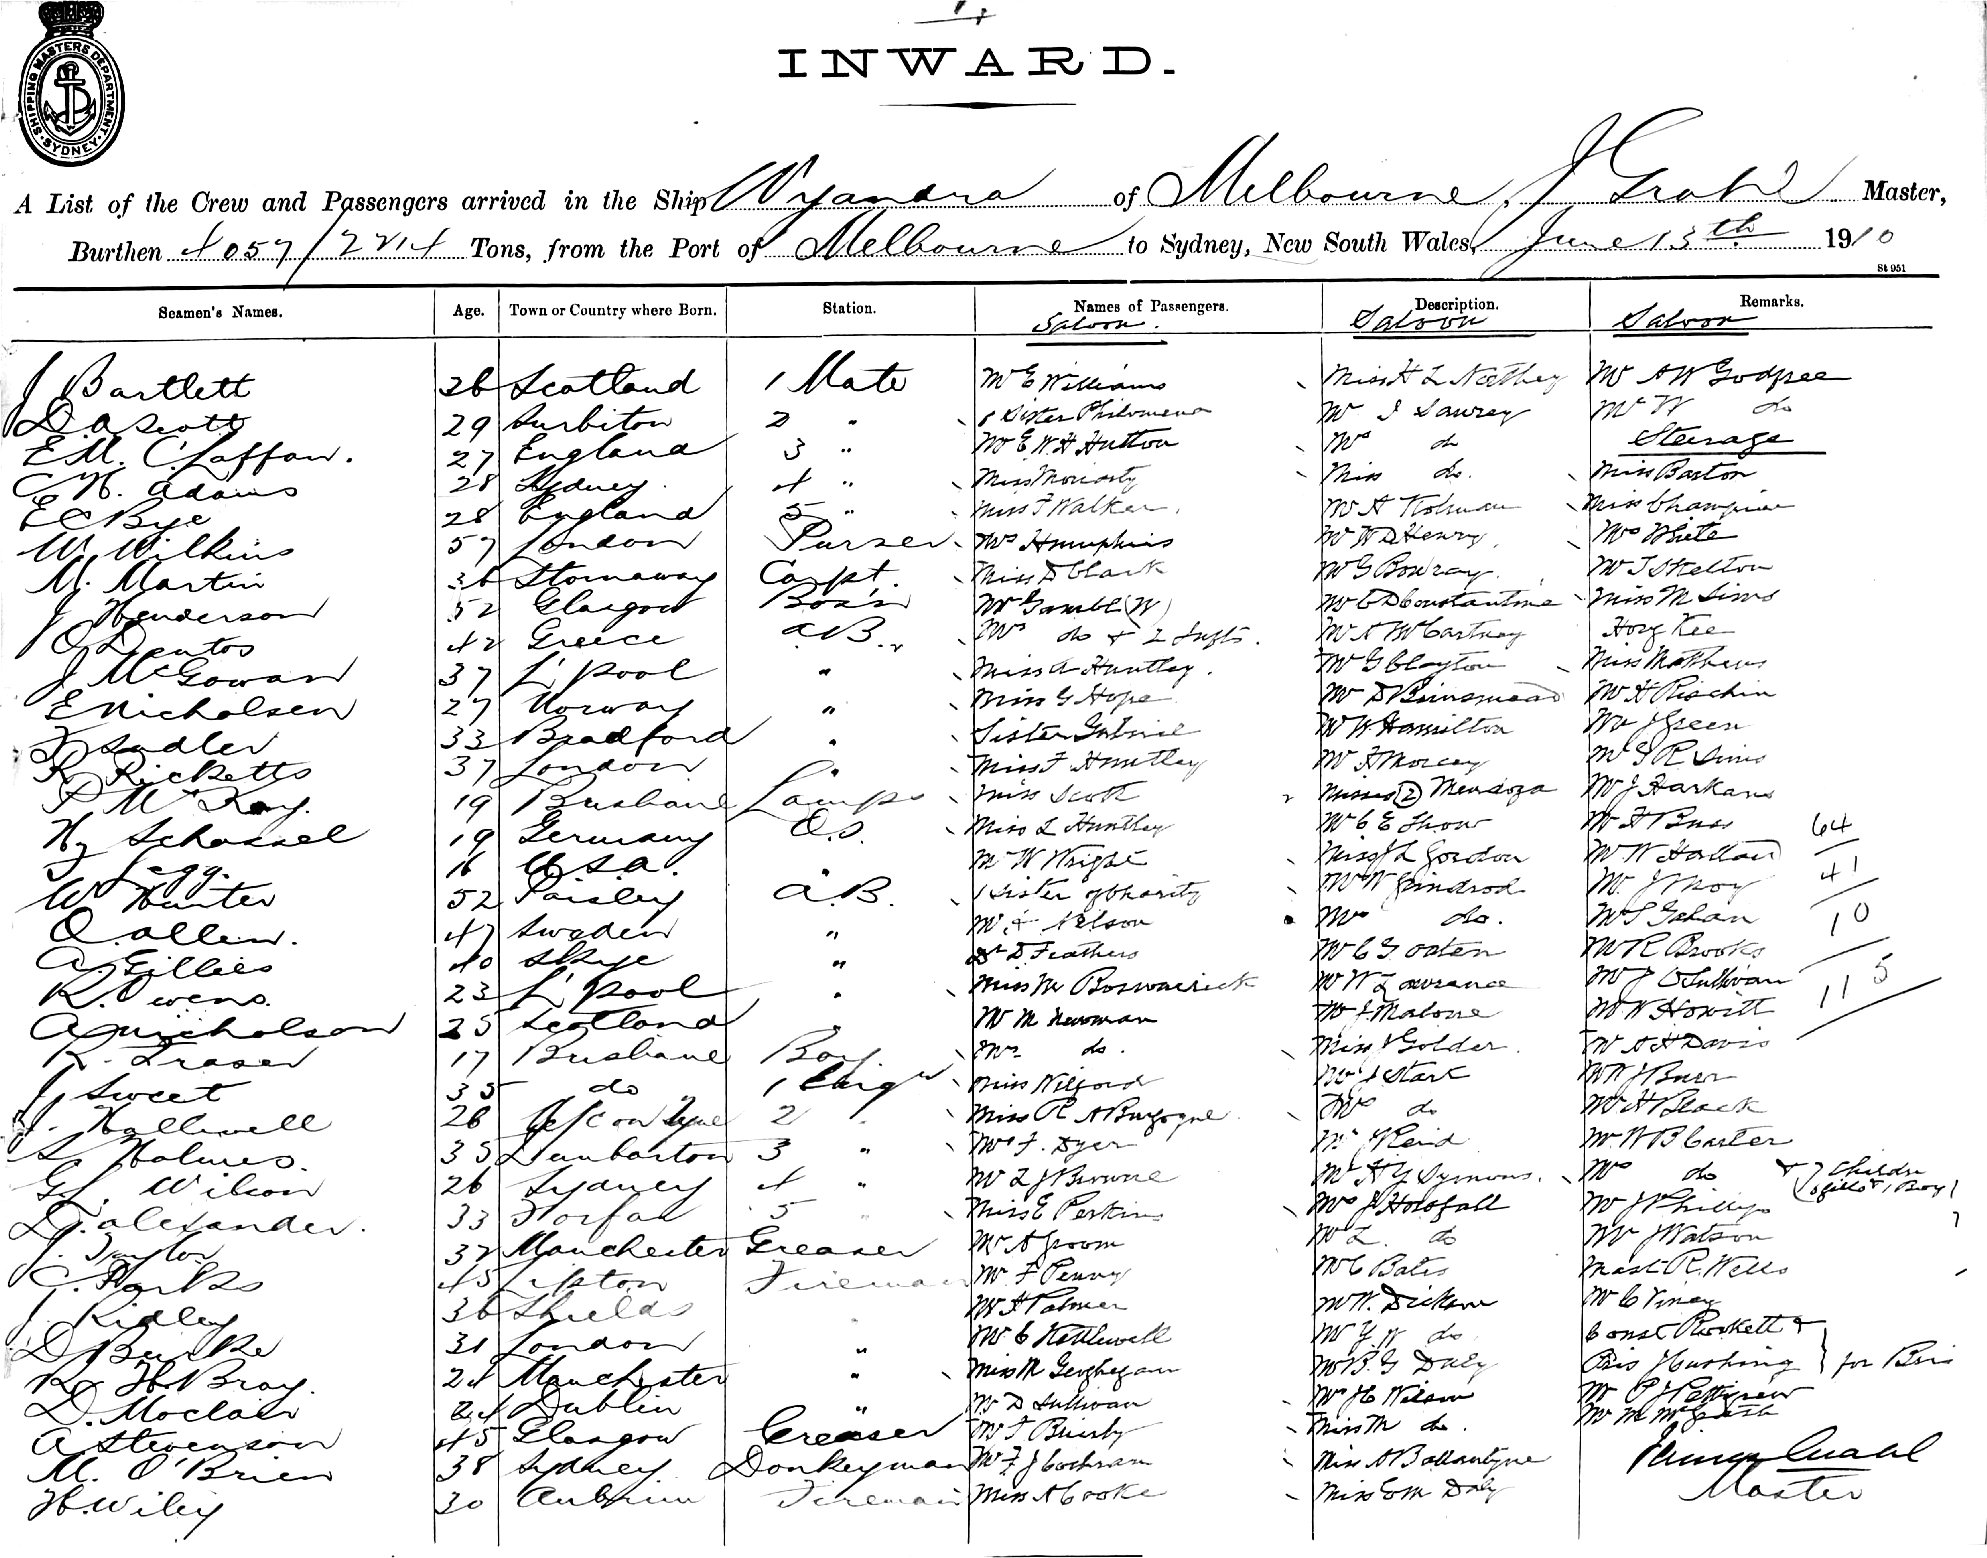 SHIPPING MASTERS DEPARTMENT
SYDNEY
INWARD.
A List of the Crew and Passengers arrived in the Ship Wyandra of Melbourne, J Grahl Master,
Burthen 4057/2214 Tons, from the Port of Melbourne to Sydney, New South Wales, June 13th 1910
St 951
Seamen's Names. Age. Town or Country where Born. Station. Names of Passengers. Description. Remarks.
Saloon. Saloon Saloon
J Bartlett 26 Scotland 1 Mate Mr E Williams Miss H L Northey Mr A W Godfree
D. A Scott 29 Surbiton 2 " 1 Sister Philomena Mr J Sawrey Mr W do
E M. C. Laffan. 27 England 3 " Mr E. W. H Hutton Mrs do Steerage
C W. Adams 28 Sydney. 4 " Miss Moriarty Miss do. Miss Barton
E C Bye 28 England 5 " Miss F Walker. Mr A Holman Miss Champion
W. Wilkins 57 London Purser Mrs Humphries Mr W D Henry Mrs White
M. Martin 36 Stornaway Carpt. Miss D Clark Mr G Bowray. Mr J Skelton
J Henderson 52 Glasgow Bos'n Mr Gamble (W) Mr C D Constantine Miss M Sims
O Dentos 42 Greece A B. Mrs do & 2 Infts. Mr A McCartney Hong Kee
J McGowan 37 L'pool " Miss A Huntley. Mr G Clayton Miss Matthews
E Nicholsen 27 Norway " Miss G Hope Mr D Brinsmead Mr H Rischin
Sadler 33 Bradford " Sister Gabriel Mr W Hamilton Mr J Green
R Ricketts 37 London " Miss F Huntley Mr F Morcey Mr G R Sims
P McKay. 19 Brisbane Lamps Miss Scott Misses (2) Mendoza Mr J Harkans
Hy Schassel 19 Germany O.S. Miss L Huntley Mr C E Show Mr H Buss 64
Fagg. 16 U S A. " Mr W Wright Miss J L Gordon Mr W Hallan 41
W Hunter 52 Paisley A.B. 1 Sister of Charity Mr W Grindrod Mr J W Roy 10
O. Allen. 47 Sweden " Mr Nelson Mrs do. Mr S Gahan
A Gillies 40 Skye " Dr D Feathers Mr C G Oaten Mr R Brooks 115
R. Owens. 23 L'pool " Miss M Boswarrick Mr W Lawrance Mr J O'Sullivan
A Nicholson 25 Scotland " Mr M Newman Mr J Malone Mr W Howitt
R. Fraser 17 Brisbane Boy Mrs do. Miss J Golder. Mr A H Davis
J Sweet 35 do 1 Eng'r Miss Wilford Mr J Stark Mr J Burr
J. Halliwell 26 N/c on Tyne 2 " Miss R A Burgogne Mrs do Mr H Black
S. Holmes. 35 Dunbarton 3 " Mrs F. Dyer Mr J Reid Mr W B Carter
G L. Wilson 26 Sydney 4 " Mr L J Browne Mr H G Symons. Mrs do & 7 Childn (6 Girls & 1 Boy)
D. G. Alexander. 33 Forfar 5 " Miss E Perkins Mrs J Holsfall Mr J Phillips
J. Taylor 37 Manchester Greaser Mr A Groom Mr L. do Mr J Watson
C. Parks 45 Lipton Fireman Mr F Penny Mr C Bates Mast R. Wells
J Ridley 36 Shields " Mr H Palmer Mr W. Dickson Mr C Viney
D Burke 31 London " Mr C Kettlewell Mr Y W do Const Rockett &
R. H. Bray. 24 Manchester " Miss M Geoghegan Mr B. G Daly Pris J Cushing } for Bris
D. Moclair 24 Dublin " Mr D Sullivan Mrs H C Wilson Mr P J Pettigrew
A Stevenson 45 Glasgow Greaser Mr T Brierly Miss M do. Mr M McGrath
M. O'Brien 38 Sydney Donkeyman Mr F J Cochran Miss A Ballantyne
H. Wiley 30 Fireman Miss A Cooke Miss E M Daly
Master